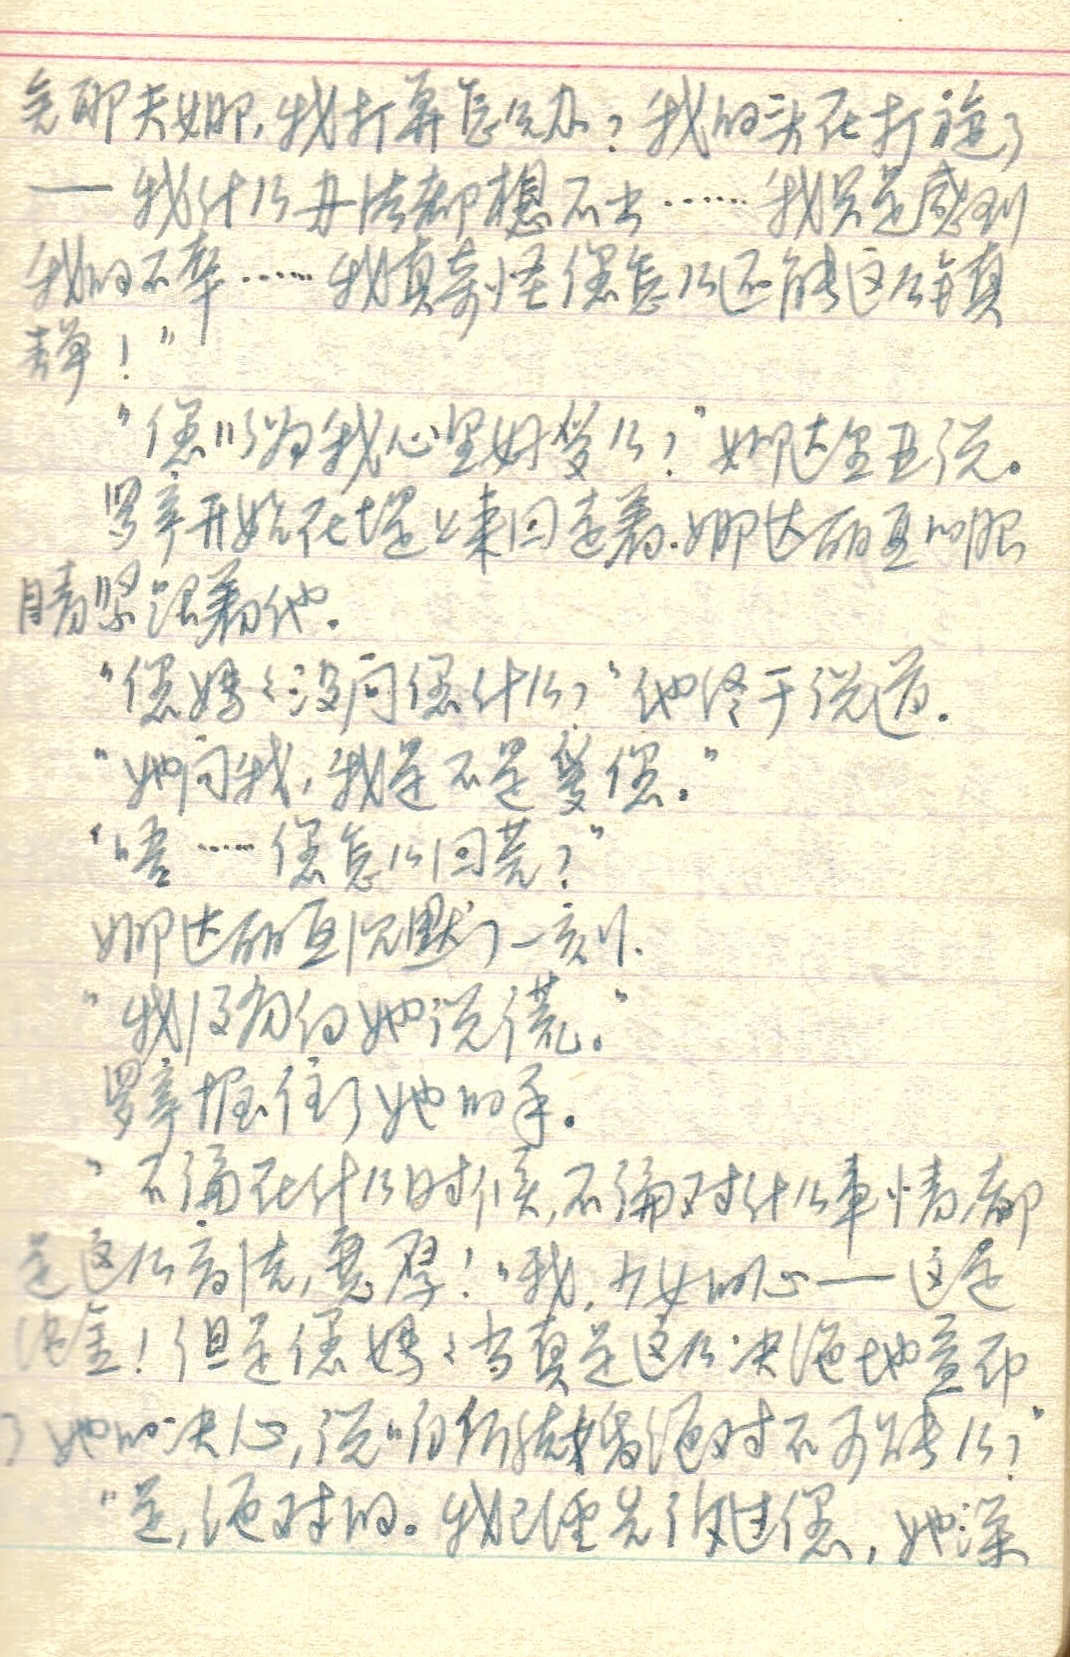 夫娜，我打算怎么办？我的头在打旋了
——我什么办法都想不出……我只是感到
我的不幸……我真奇怪您怎么还能这么镇
静！”
“您以为我心里好受么？”娜达丽亚说。
罗亭开始在堤上来回走着。娜达丽亚的眼
睛紧跟着他。
“您妈妈没问您什么？”他终于说道。
“她问我，我是不是爱您。”
“唔……您怎么回答？”
娜达丽亚沉默了一刻。
“我没有向她说谎。”
罗亭握住了她的手。
“不论在什么时候，不论对什么事情都
是这么高洁，宽厚！哦，少女的心——这是
纯金！但是您妈妈当真是这么决绝地宣布
了她的决心，说咱们结婚绝对不可能么？”
“是，绝对的。我已经告诉过您，她深